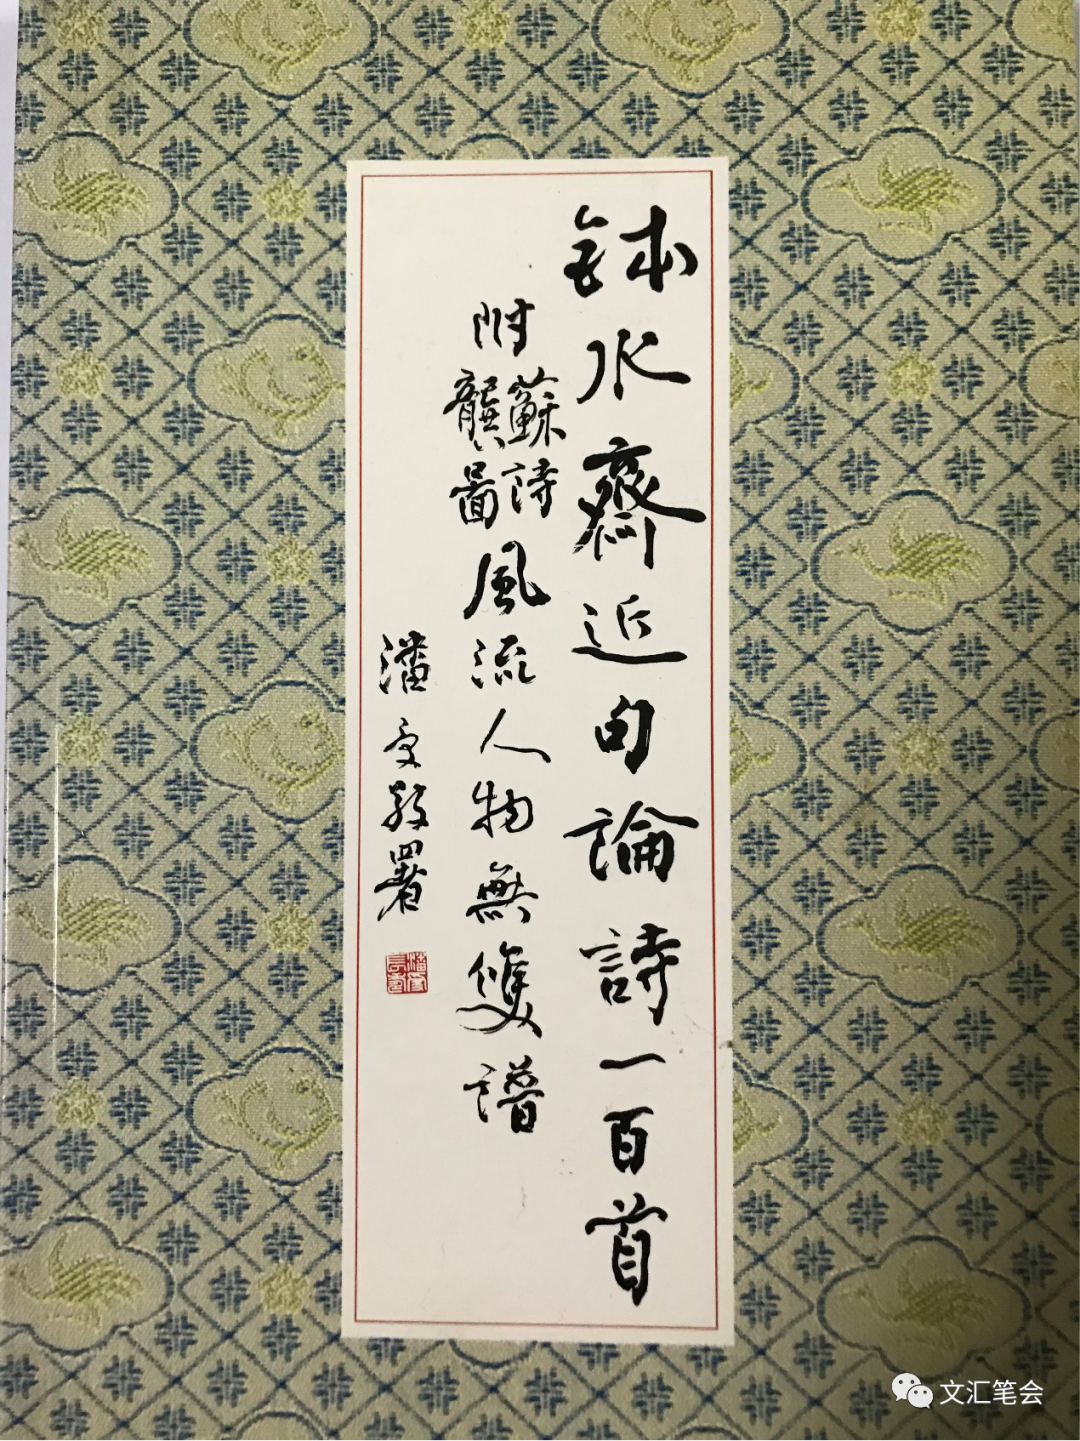 鉢水齋近句論詩一百首
附蘇詩龔圖風流人物無雙譜
潘受敬署
文汇笔会